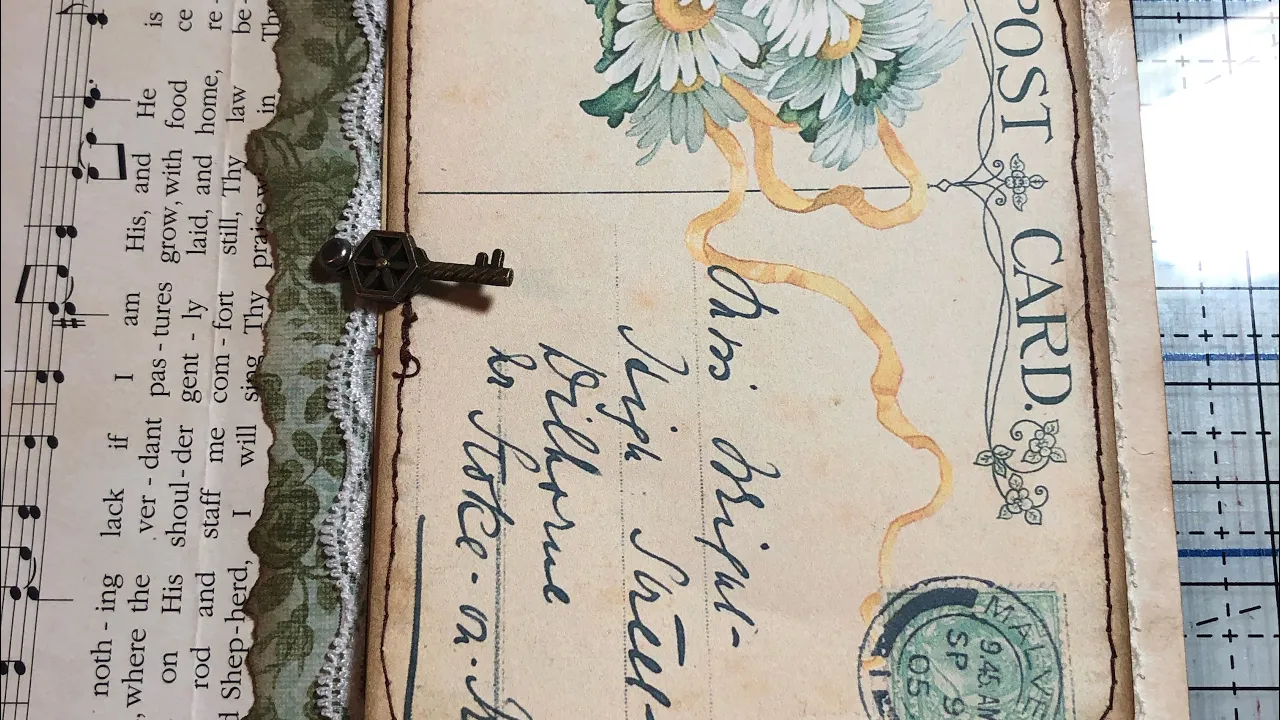 noth - ing lack if I am His, and He is
, where the ver - dant pas - tures grow, with food ce
on His shoul - der gent - ly laid, and home, re -
rod and staff me com - fort still, Thy law be -
d Shep - herd, I will sing Thy praise in Thy
POST CARD.
MALVE
9.45 AM
SP 9
05
Miss
High Street-
Stoke-on-